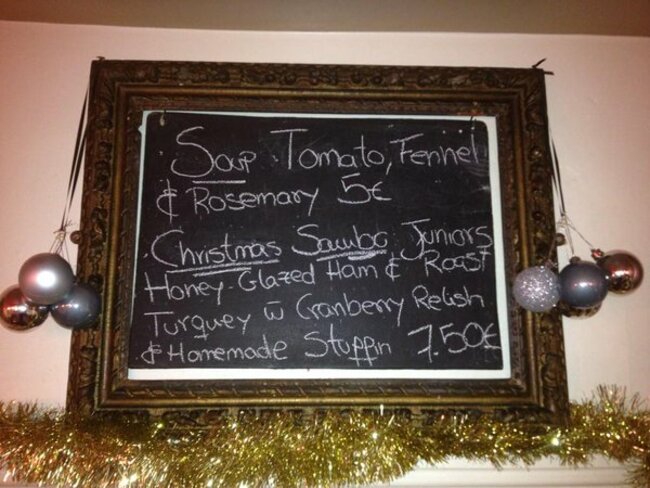 Soup Tomato, Fennel
& Rosemary 5€
Christmas Sambo Juniors
Honey-Glazed Ham & Roast
Turquey w Cranberry Relish
& Homemade Stuppin 7.50€